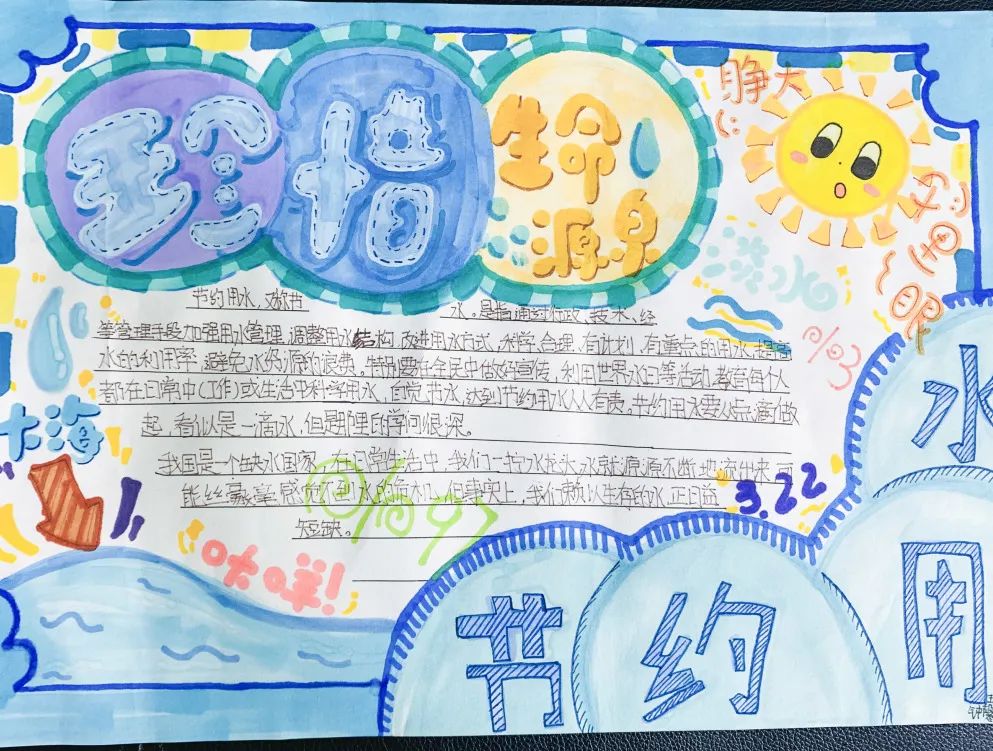 珍惜
生命
源泉
睁大
你的眼
淡水
0/03
节约用水,又称节
水。是指通过行政、技术、经
等管理手段加强用水管理,调整用水结构,改进用水方式,科学、合理、有计划、有重点的用水,提高
水的利用率,避免水资源的浪费。特别要在全民中做好宣传,利用世界水日等活动,教育每个人
都在日常中(工作)或生活中科学用水,自觉节水,达到节约用水人人有责。节约用水要从点滴做
起,看似是一滴水,但是那里的学问很深。
我国是一个缺水国家,在日常生活中,我们一拧水龙头,水就源源不断地流出来,可
能丝豪掌感觉不到水的危机。但事实上,我们赖以生存的水,正日益
短缺。
大海
3.22
0/097
哎哗!
节约用水